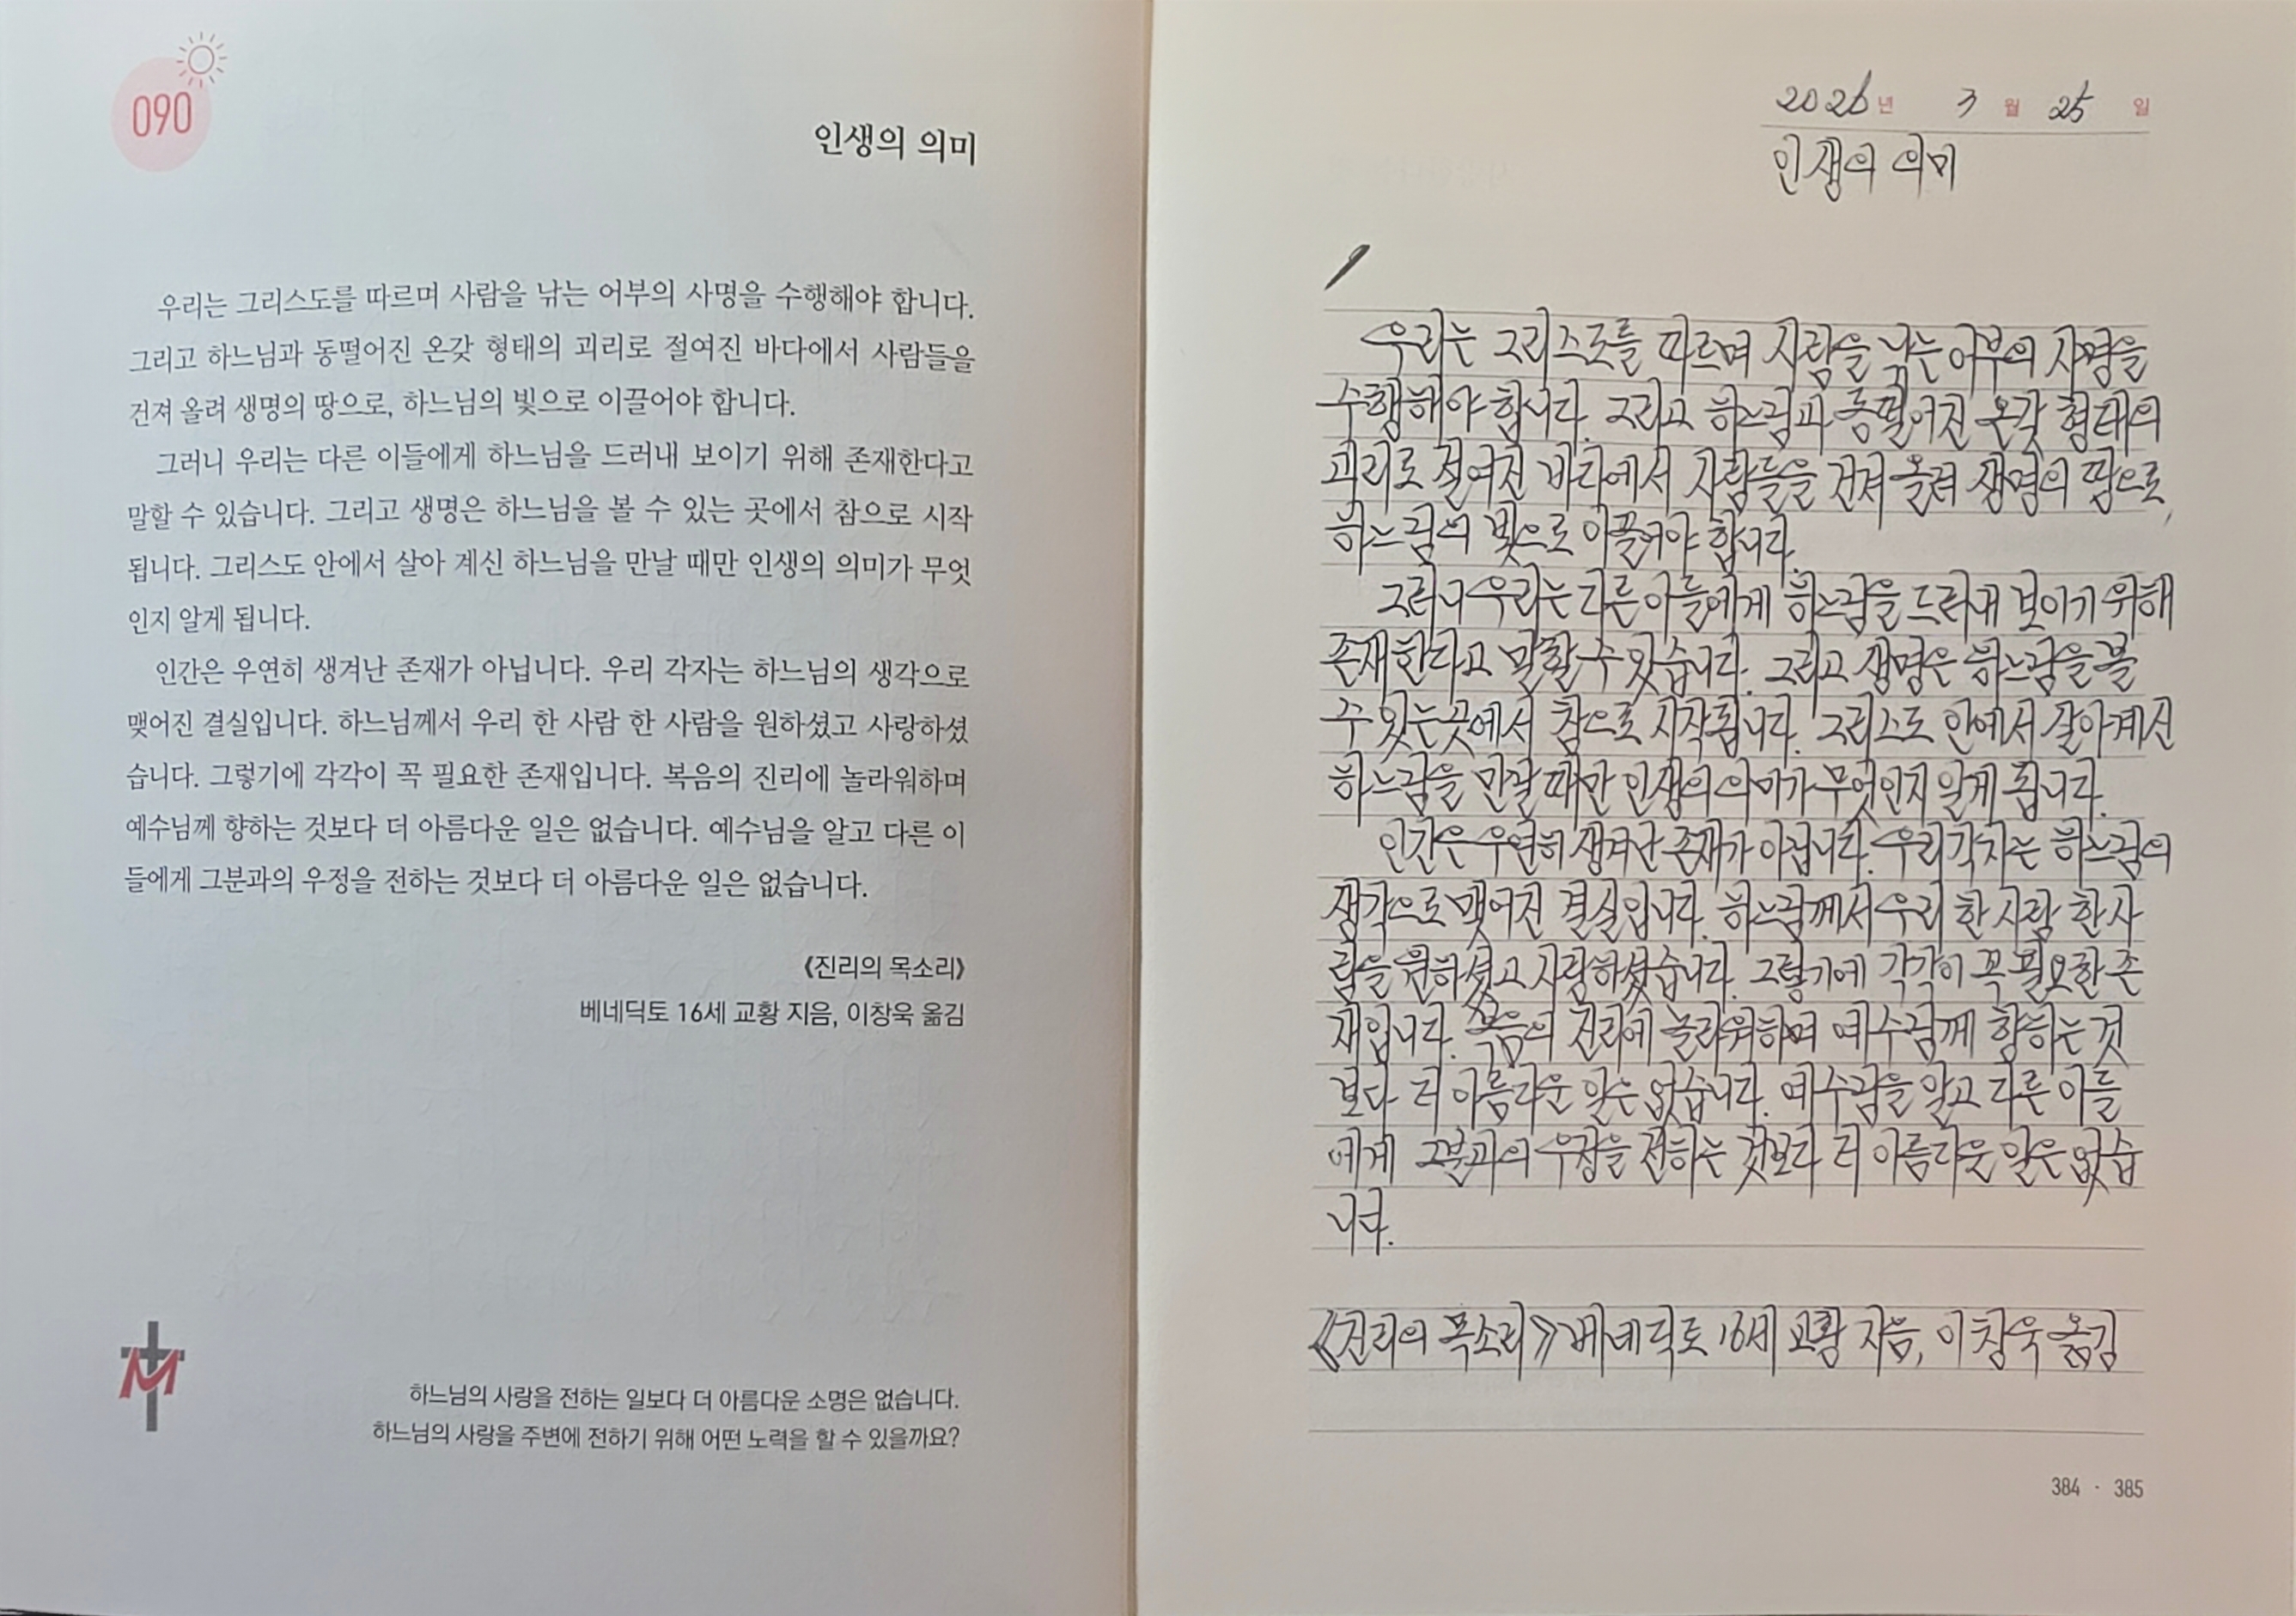 090
인생의 의미
우리는 그리스도를 따르며 사람을 낚는 어부의 사명을 수행해야 합니다.
그리고 하느님과 동떨어진 온갖 형태의 괴리로 절여진 바다에서 사람들을
건져 올려 생명의 땅으로, 하느님의 빛으로 이끌어야 합니다.
그러니 우리는 다른 이들에게 하느님을 드러내 보이기 위해 존재한다고
말할 수 있습니다. 그리고 생명은 하느님을 볼 수 있는 곳에서 참으로 시작
됩니다. 그리스도 안에서 살아 계신 하느님을 만날 때만 인생의 의미가 무엇
인지 알게 됩니다.
인간은 우연히 생겨난 존재가 아닙니다. 우리 각자는 하느님의 생각으로
맺어진 결실입니다. 하느님께서 우리 한 사람 한 사람을 원하셨고 사랑하셨
습니다. 그렇기에 각각이 꼭 필요한 존재입니다. 복음의 진리에 놀라워하며
예수님께 향하는 것보다 더 아름다운 일은 없습니다. 예수님을 알고 다른 이
들에게 그분과의 우정을 전하는 것보다 더 아름다운 일은 없습니다.
《진리의 목소리》
베네딕토 16세 교황 지음, 이창욱 옮김
M
하느님의 사랑을 전하는 일보다 더 아름다운 소명은 없습니다.
하느님의 사랑을 주변에 전하기 위해 어떤 노력을 할 수 있을까요?
2026년 3월 25일
인생의 의미
우리는 그리스도를 따르며 사람을 낚는 어부의 사명을
수행해야 합니다. 그리고 하느님과 동떨어진 온갖 형태의
괴리로 절여진 바다에서 사람들을 건져 올려 생명의 땅으로,
하느님의 빛으로 이끌어야 합니다.
그러니 우리는 다른 이들에게 하느님을 드러내 보이기 위해
존재한다고 말할 수 있습니다. 그리고 생명은 하느님을 볼
수 있는 곳에서 참으로 시작됩니다. 그리스도 안에서 살아계신
하느님을 만날 때만 인생의 의미가 무엇인지 알게 됩니다.
인간은 우연히 생겨난 존재가 아닙니다. 우리 각자는 하느님의
생각으로 맺어진 결실입니다. 하느님께서 우리 한 사람 한 사
람을 원하셨고 사랑하셨습니다. 그렇기에 각각이 꼭 필요한 존
재입니다. 복음의 진리에 놀라워하며 예수님께 향하는 것
보다 더 아름다운 일은 없습니다. 예수님을 알고 다른 이들
에게 그분과의 우정을 전하는 것보다 더 아름다운 일은 없습
니다.
《진리의 목소리》 베네딕토 16세 교황 지음, 이창욱 옮김
384 · 385